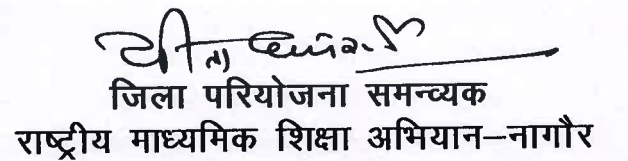 जिला परियोजना समन्व्यक
राष्ट्रीय माध्यमिक शिक्षा अभियान–नागौर